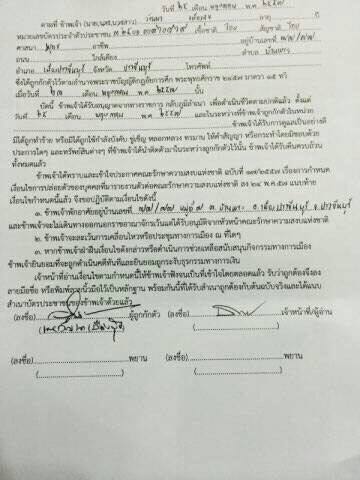 ตามที่ ข้าพเจ้า (นาย,นาง,นางสาว) วันมา อายุ ปี
หมายเลขบัตรประจำตัวประชาชน เชื้อชาติ ไทย สัญชาติ ไทย
ศาสนา พุทธ อาชีพ อยู่บ้านเลขที่ ๗๗/๗๗
ถนน ใกล้เคียง ตำบล
อำเภอ เมืองปราจีนบุรี จังหวัด ปราจีนบุรี โทรศัพท์
ซึ่งได้ถูกกักตัวไว้ตามอำนาจพระราชบัญญัติกฎอัยการศึก พระพุทธศักราช ๒๔๕๗ มาตรา ๑๕ ทวิ
เมื่อวันที่ เดือน พฤษภาคม พ.ศ. ๒๕๕๗
บัดนี้ ข้าพเจ้าได้รับอนุญาตจากทางราชการ กลับภูมิลำเนา เพื่อดำเนินชีวิตตามปกติแล้ว ตั้งแต่
วันที่ ๒๕ เดือน พฤษภาคม พ.ศ. ๒๕๕๗ และในระหว่างที่ข้าพเจ้าถูกกักตัวในหน่วย
ข้าพเจ้าได้รับการดูแลเป็นอย่างดี
มิได้ถูกทำร้าย หรือมิได้ถูกใช้กำลังบังคับ ขู่เข็ญ หลอกหลวง ทรมาน ให้คำสัญญา หรือกระทำโดยมิชอบด้วย
ประการใดๆ และทรัพย์สินต่างๆ ที่ข้าพเจ้าได้นำติดตัวมาในระหว่างถูกกักตัวไว้นั้น ข้าพเจ้าได้รับคืนครบถ้วน
ทั้งหมดแล้ว
ข้าพเจ้าได้ทราบและเข้าใจประกาศคณะรักษาความสงบแห่งชาติ ฉบับที่ ๓๙/๒๕๕๗ เรื่องการกำหนด
เงื่อนไขการปล่อยตัวของบุคคลที่มารายงานตัวต่อคณะรักษาความสงบแห่งชาติ ลง ๒๕ พ.ค.๕๗ แนบท้าย
เงื่อนไขกำหนดนี้แล้ว จึงขอปฏิบัติตามเงื่อนไขนี้
๑. ข้าพเจ้าพักอาศัยอยู่บ้านเลขที่ ๗๗/๗๗ หมู่ที่ ๗ อ.เมืองปราจีนบุรี จ.ปราจีนบุรี
และข้าพเจ้าจะไม่เดินทางออกนอกราชอาณาจักรเว้นแต่ได้รับอนุมัติจากหัวหน้าคณะรักษาความสงบแห่งชาติ
๒. ข้าพเจ้าจะละเว้นการเคลื่อนไหวหรือประชุมทางการเมือง ณ ที่ใดๆ
๓. หากข้าพเจ้าฝ่าฝืนเงื่อนไขดังกล่าวหรือดำเนินการช่วยเหลือสนับสนุนกิจกรรมทางการเมือง
ข้าพเจ้ายินยอมที่จะถูกดำเนินคดีทันทีและยินยอมถูกระงับธุรกรรมทางการเงิน
เจ้าหน้าที่อ่านเงื่อนไขตามกำหนดนี้ให้ข้าพเจ้าฟังจนเป็นที่เข้าใจโดยตลอดแล้ว รับว่าถูกต้องจึงลง
ลายมือชื่อ หรือพิมพ์ลายนิ้วมือไว้เป็นหลักฐาน พร้อมกันนี้ที่ได้รับสำเนาถูกต้องกับต้นฉบับจริงและได้แนบ
สำเนาบัตรประชาชนของข้าพเจ้าด้วยแล้ว
(ลงชื่อ) ผู้ถูกกักตัว (ลงชื่อ) เจ้าหน้าที่/ผู้อ่าน
(ลงชื่อ) พยาน (ลงชื่อ) พยาน